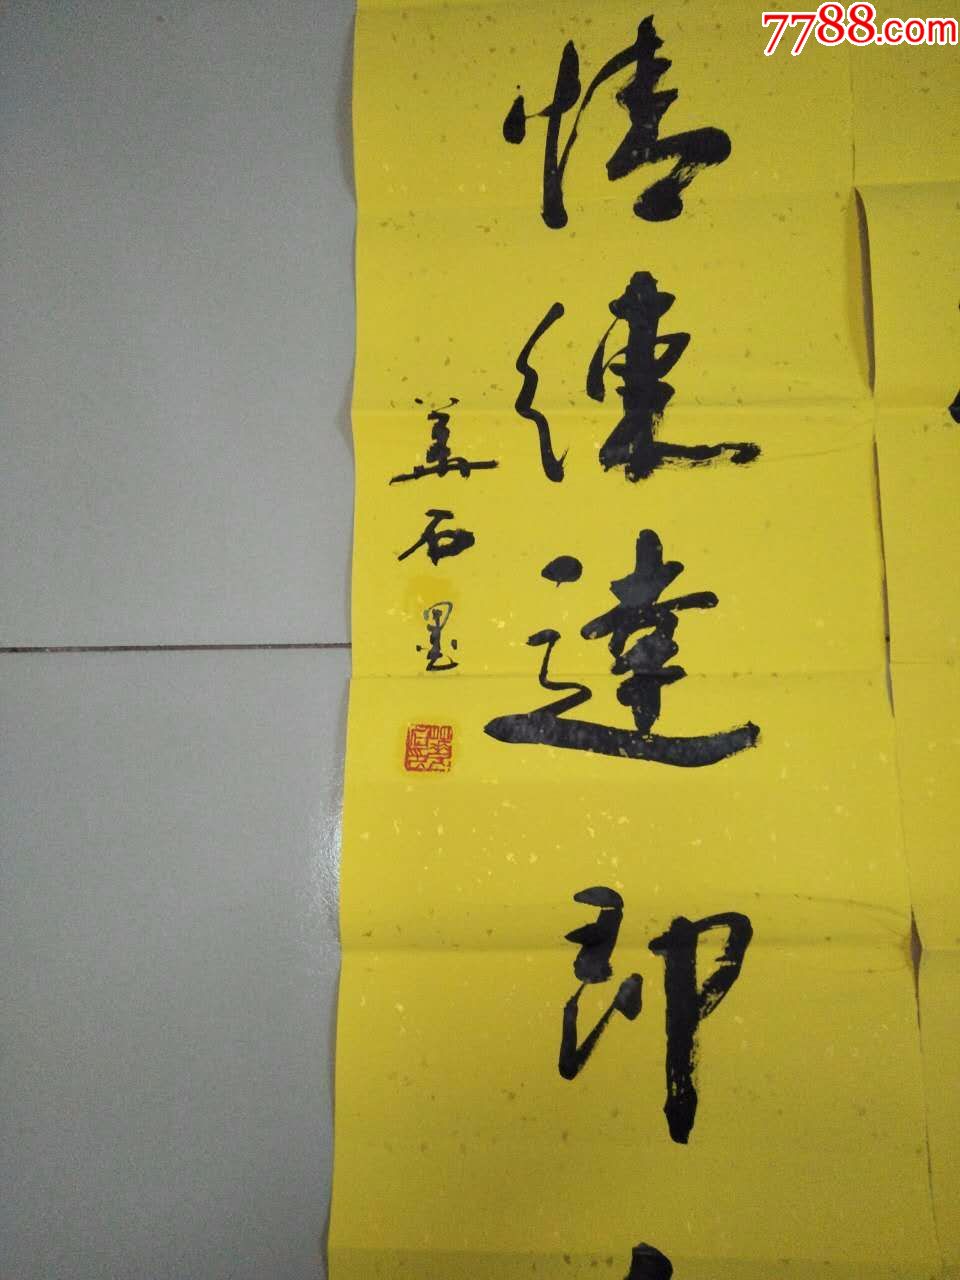 7788.com
情練達即
姜石墨